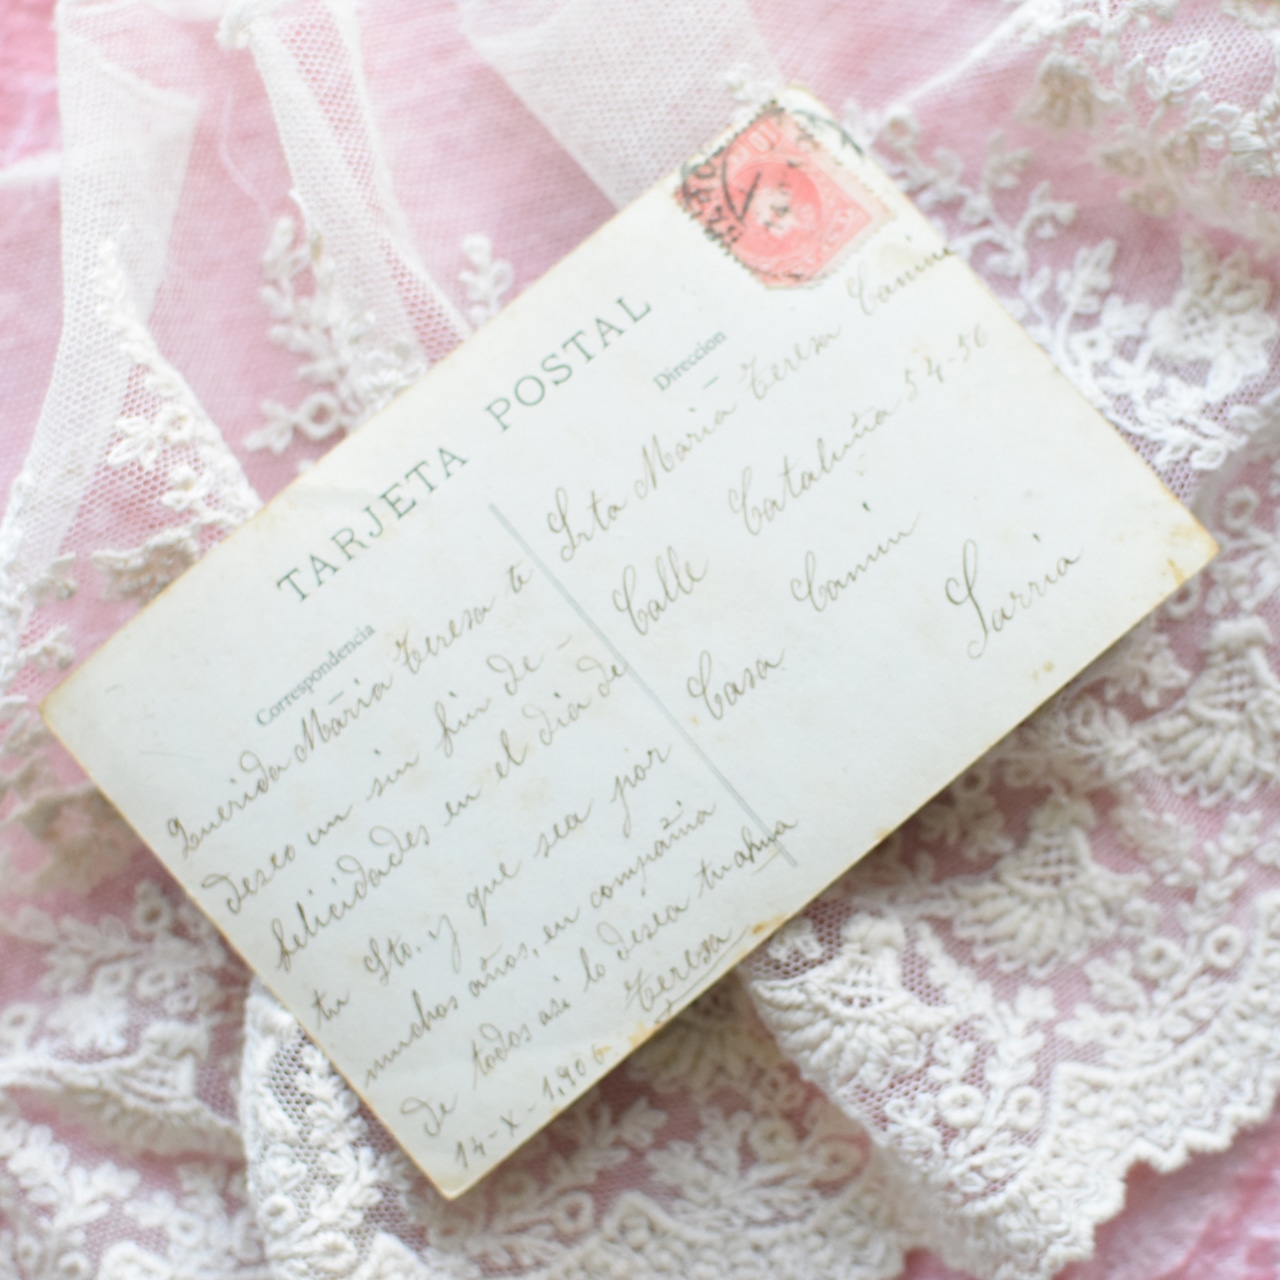 TARJETA POSTAL
Correspondencia
Direccion
Querida Maria Teresa te
deseo un sin fin de -
felicidades en el dia de
tu Sto. y que sea por
muchos años, en compañia
de todos asi lo desea tu
Teresa
14-X-1.906
Srta Maria Teresa
Calle Cataluña 54-56
Casa Camin
Sarria
10